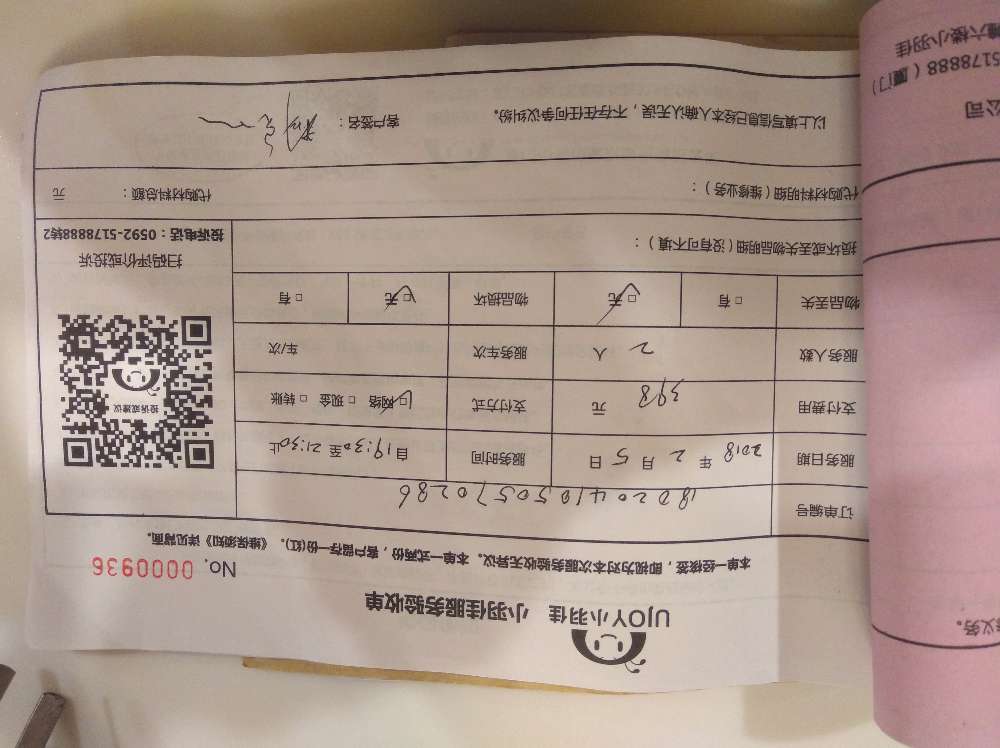 UJOY小羽佳 小羽佳服务验收单
本单一经核签，即视为对本次服务验收无异议。本单一式两份，客户留存一份(红)。《维保须知》详见背面。
No. 0000936
订单编号 1802041050570286
服务日期 2018 年 2 月 5 日 服务时间 自19:30至21:30止
支付费用 398 元 支付方式 □网络 □现金 □转账
服务人数 2 人 服务车次 车/次
物品丢失 □有 □无 物品损坏 □无 □有
损坏或丢失物品明细（没有可不填）：
投诉或建议
扫码评价或投诉
投诉电话：0592-5178888转2
代购材料明细（维修业务）： 代购材料总额： 元
以上填写信息已经本人确认无误，不存在任何争议纠纷。 客户签名：
义务。
公司
5178888（厦门）
六楼小羽佳